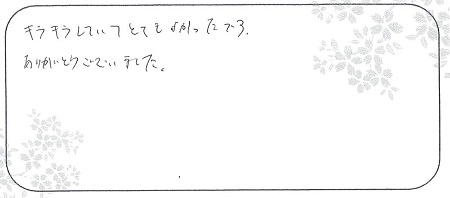 キラキラしていてとてもよかったです.
ありがとうございました。